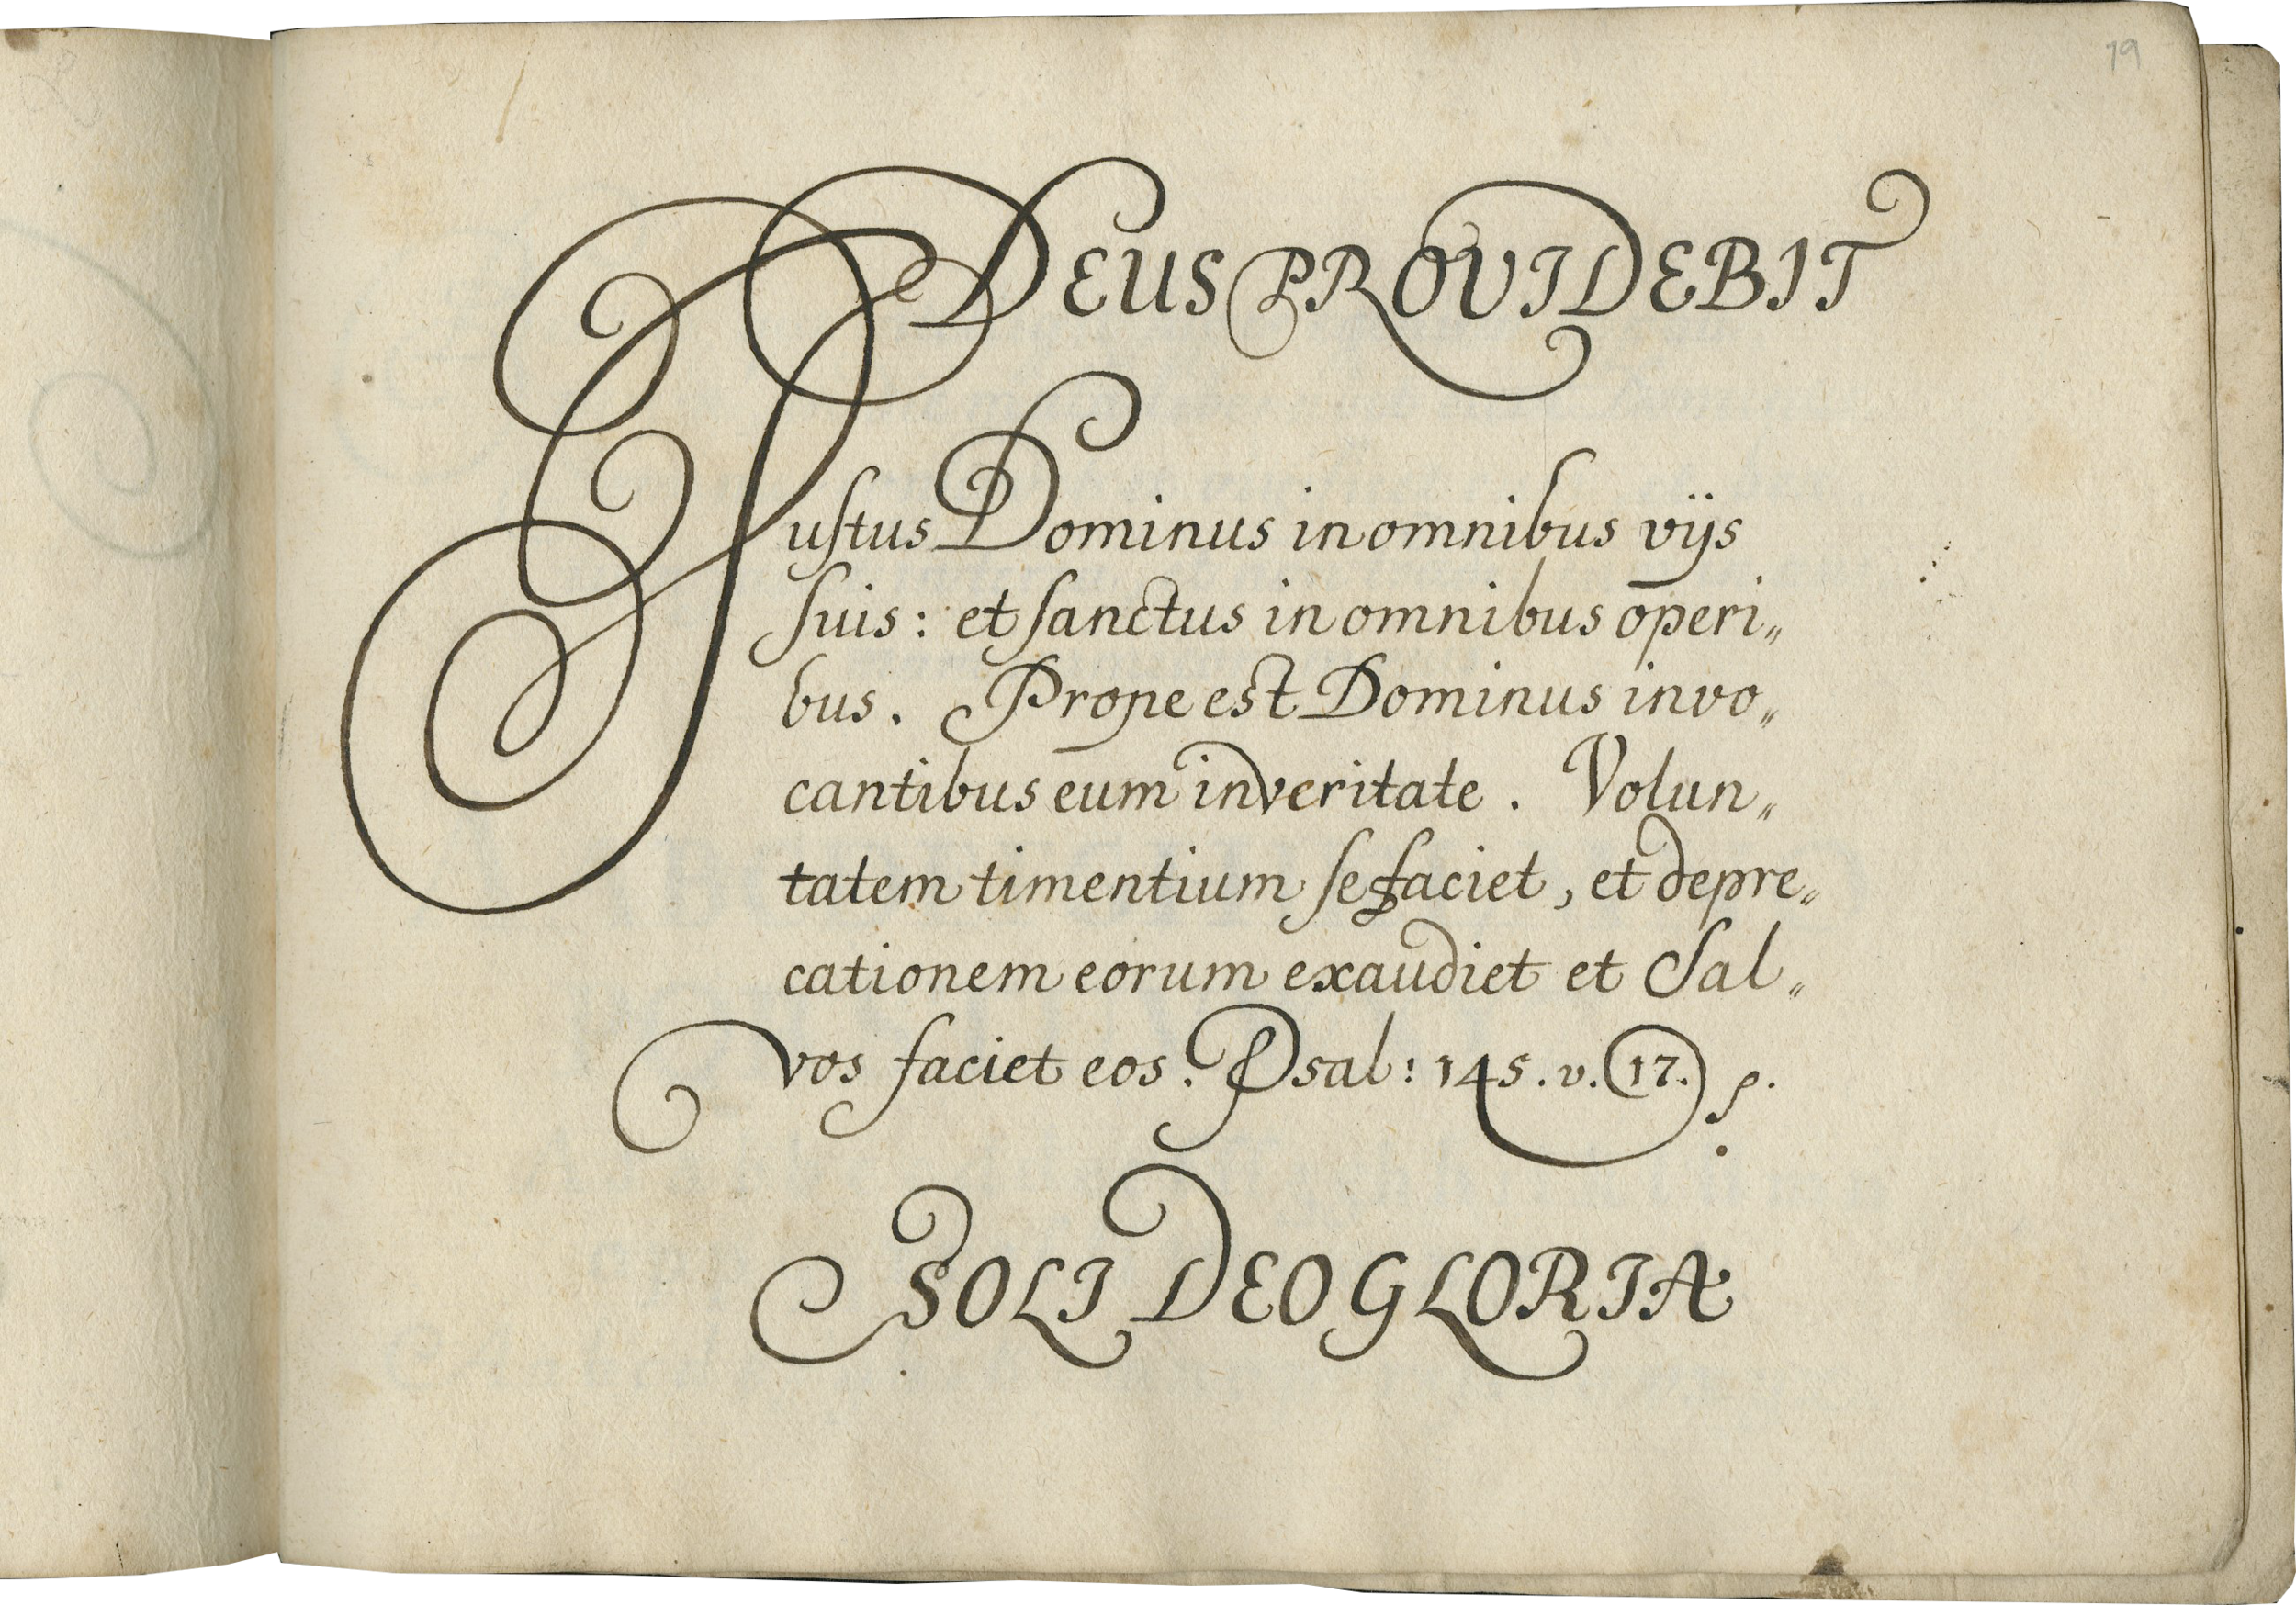 19
DEUS PROVIDEBIT
Iustus Dominus in omnibus vijs
suis: et sanctus in omnibus operi„
bus. Prope est Dominus invo„
cantibus eum in veritate. Volun„
tatem timentium se faciet, et depre„
cationem eorum exaudiet et Sal„
vos faciet eos. Psal: 145. v. 17.
SOLI DEO GLORIA